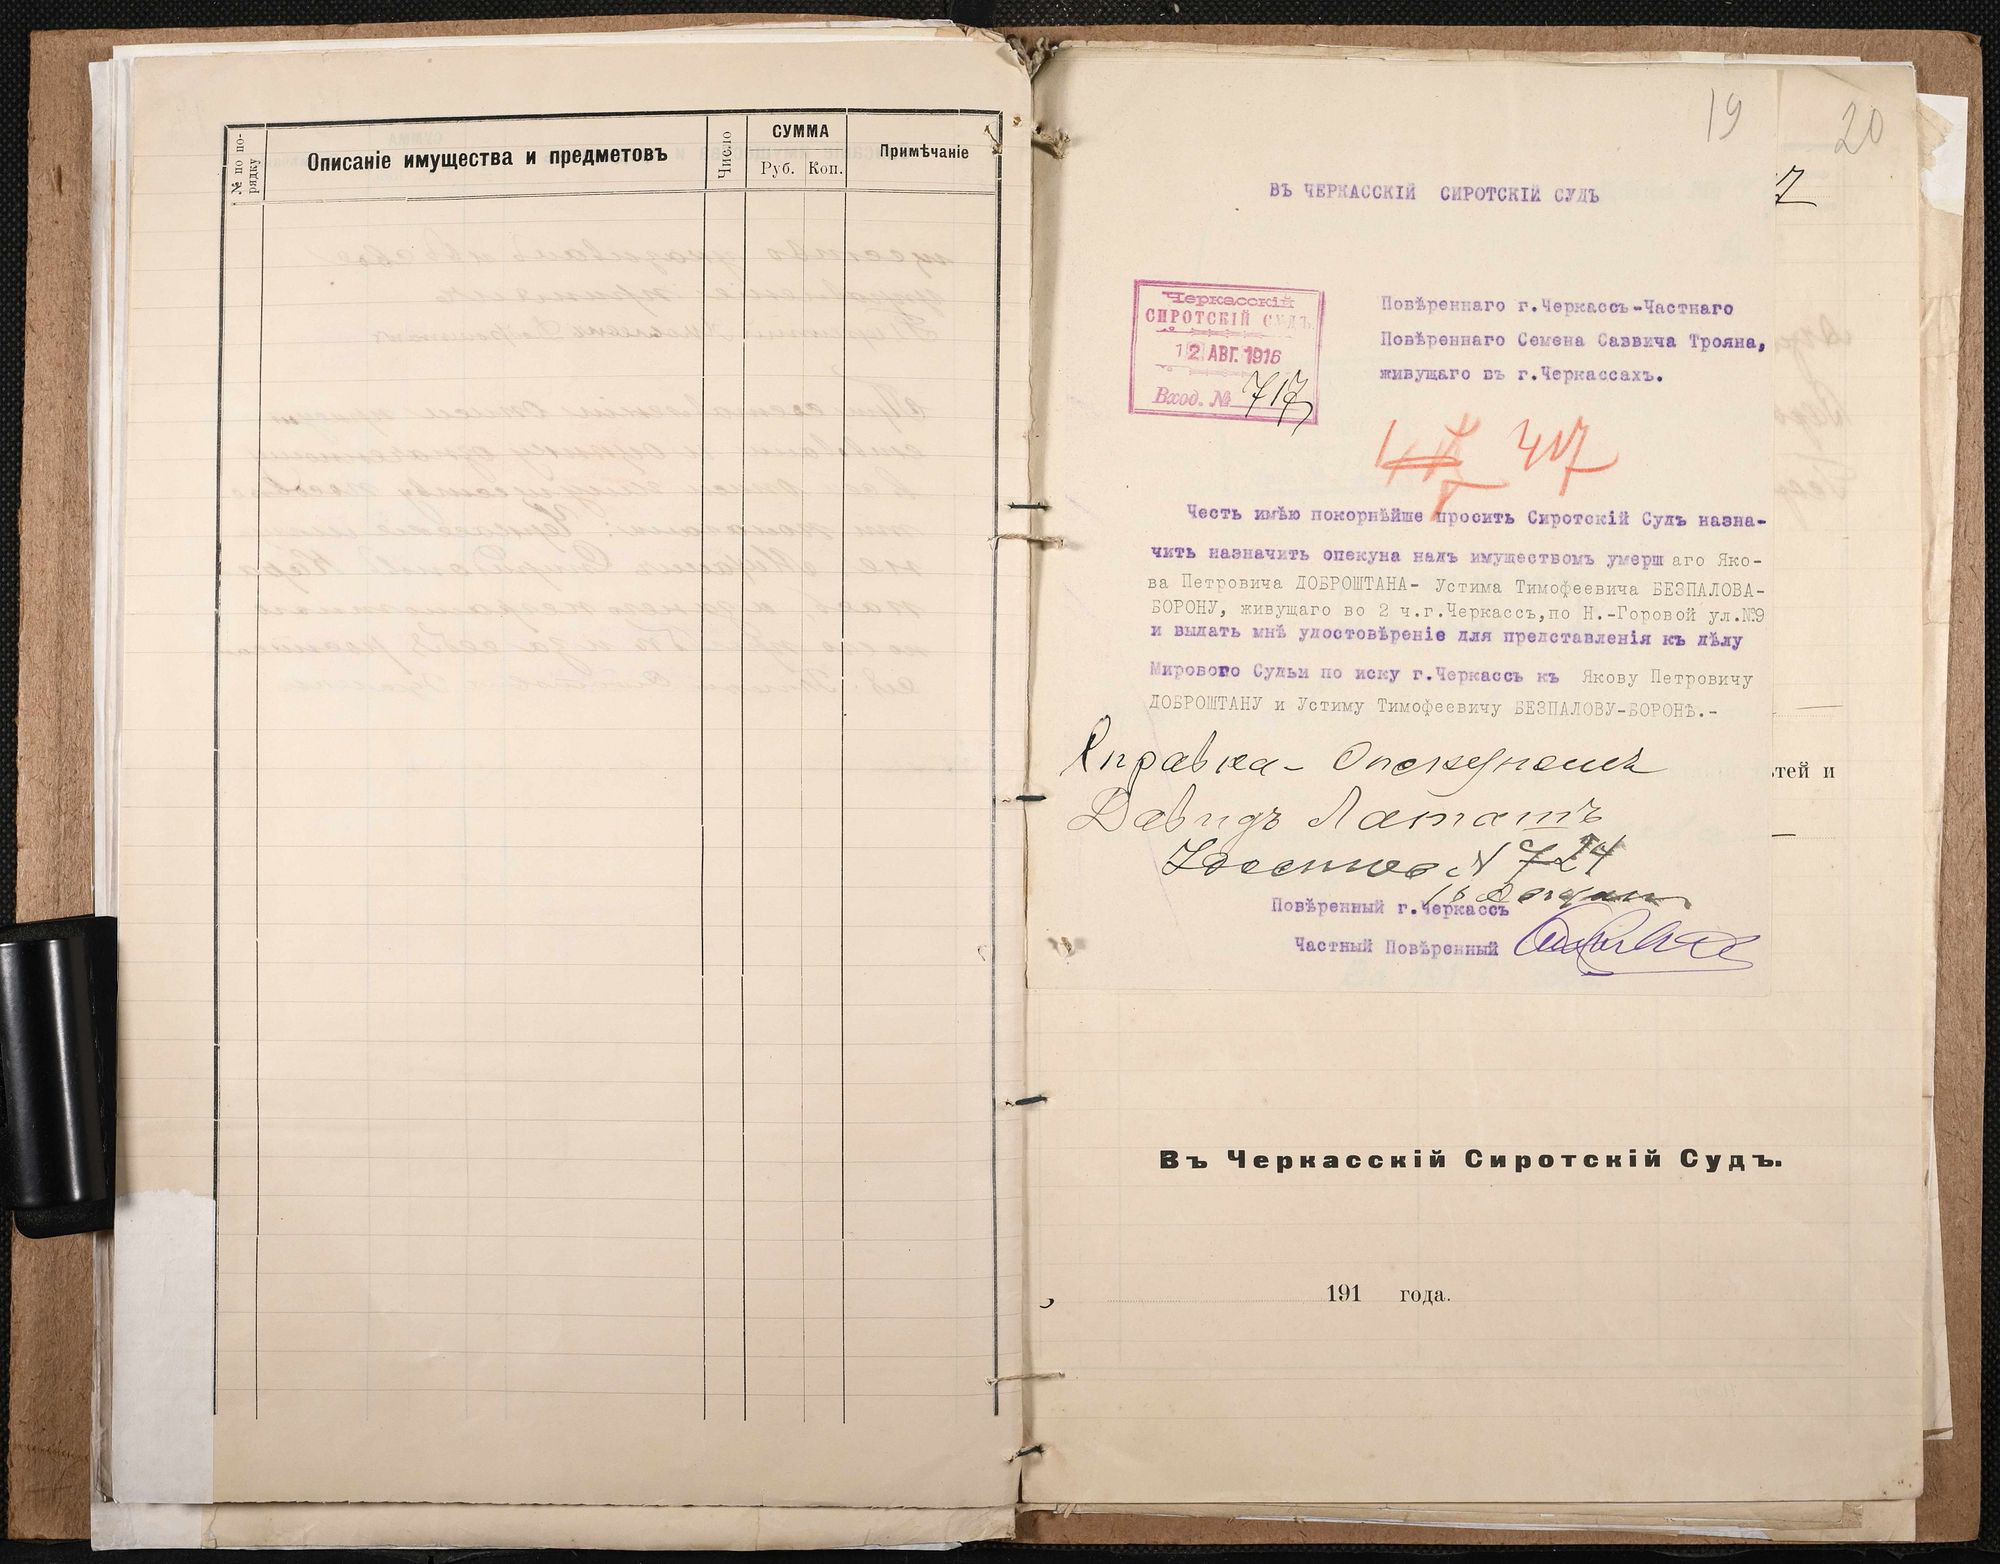 № по по-
рядку
Описаніе имущества и предметовъ
Число
СУММА
Руб. Коп.
Примѣчаніе
19
20
ВЪ ЧЕРКАССКІЙ СИРОТСКІЙ СУДЪ
Черкасскій
СИРОТСКІЙ СУДЪ.
12 АВГ. 1916
Вход. № 717
Повѣреннаго г.Черкассъ-Частнаго
Повѣреннаго Семена Саввича Трояна,
живущаго въ г.Черкассахъ.
417
Честь имѣю покорнѣйше просить Сиротскій Судъ назна-
чить назначить опекуна надъ имуществомъ умерш аго Яко-
ва Петровича ДОБРОШТАНА- Устима Тимофеевича БЕЗПАЛОВА-
БОРОНУ, живущаго во 2 ч.г.Черкассъ,по Н.-Горовой ул.№9
и выдать мнѣ удостовѣреніе для представленія къ дѣлу
Мирового Судьи по иску г.Черкассъ къ Якову Петровичу
ДОБРОШТАНУ и Устиму Тимофеевичу БЕЗПАЛОВУ-БОРОНѢ.-
Справка- Опекуномъ
Давидъ Латашъ
Повѣренный г.Черкассъ
Частный Повѣренный
тей и
Въ Черкасскій Сиротскій Судъ.
191 года.